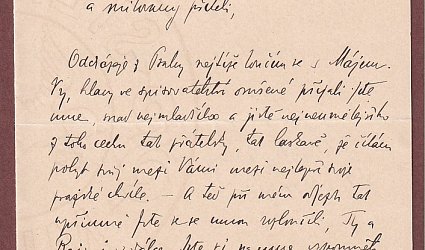 a milovaný příteli,
Odcházeje z Prahy nejtíže loučím se s Májem.
Vy, hlavy ve spisovatelství osvěžené přijali jste
mne, snad nejmladšího a jistě nejneumělejšího
z toho cechu tak přátelsky, tak laskavě, že čítám
pobyt svůj mezi Vámi mezi nejlepší svoje
pražské chvíle. — A teď při mém odjezdu tak
upřímně jste se se mnou rozloučili, Ty a